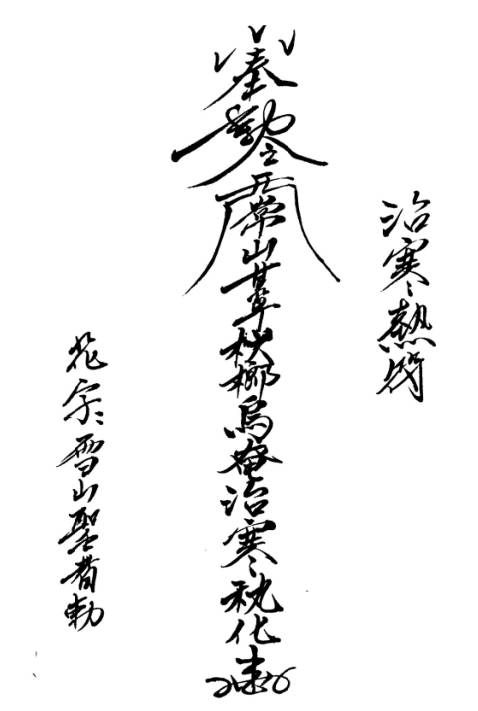 治寒熱符
奉勅令常山甘草梹榔烏治寒化
花字雪山聖者勅